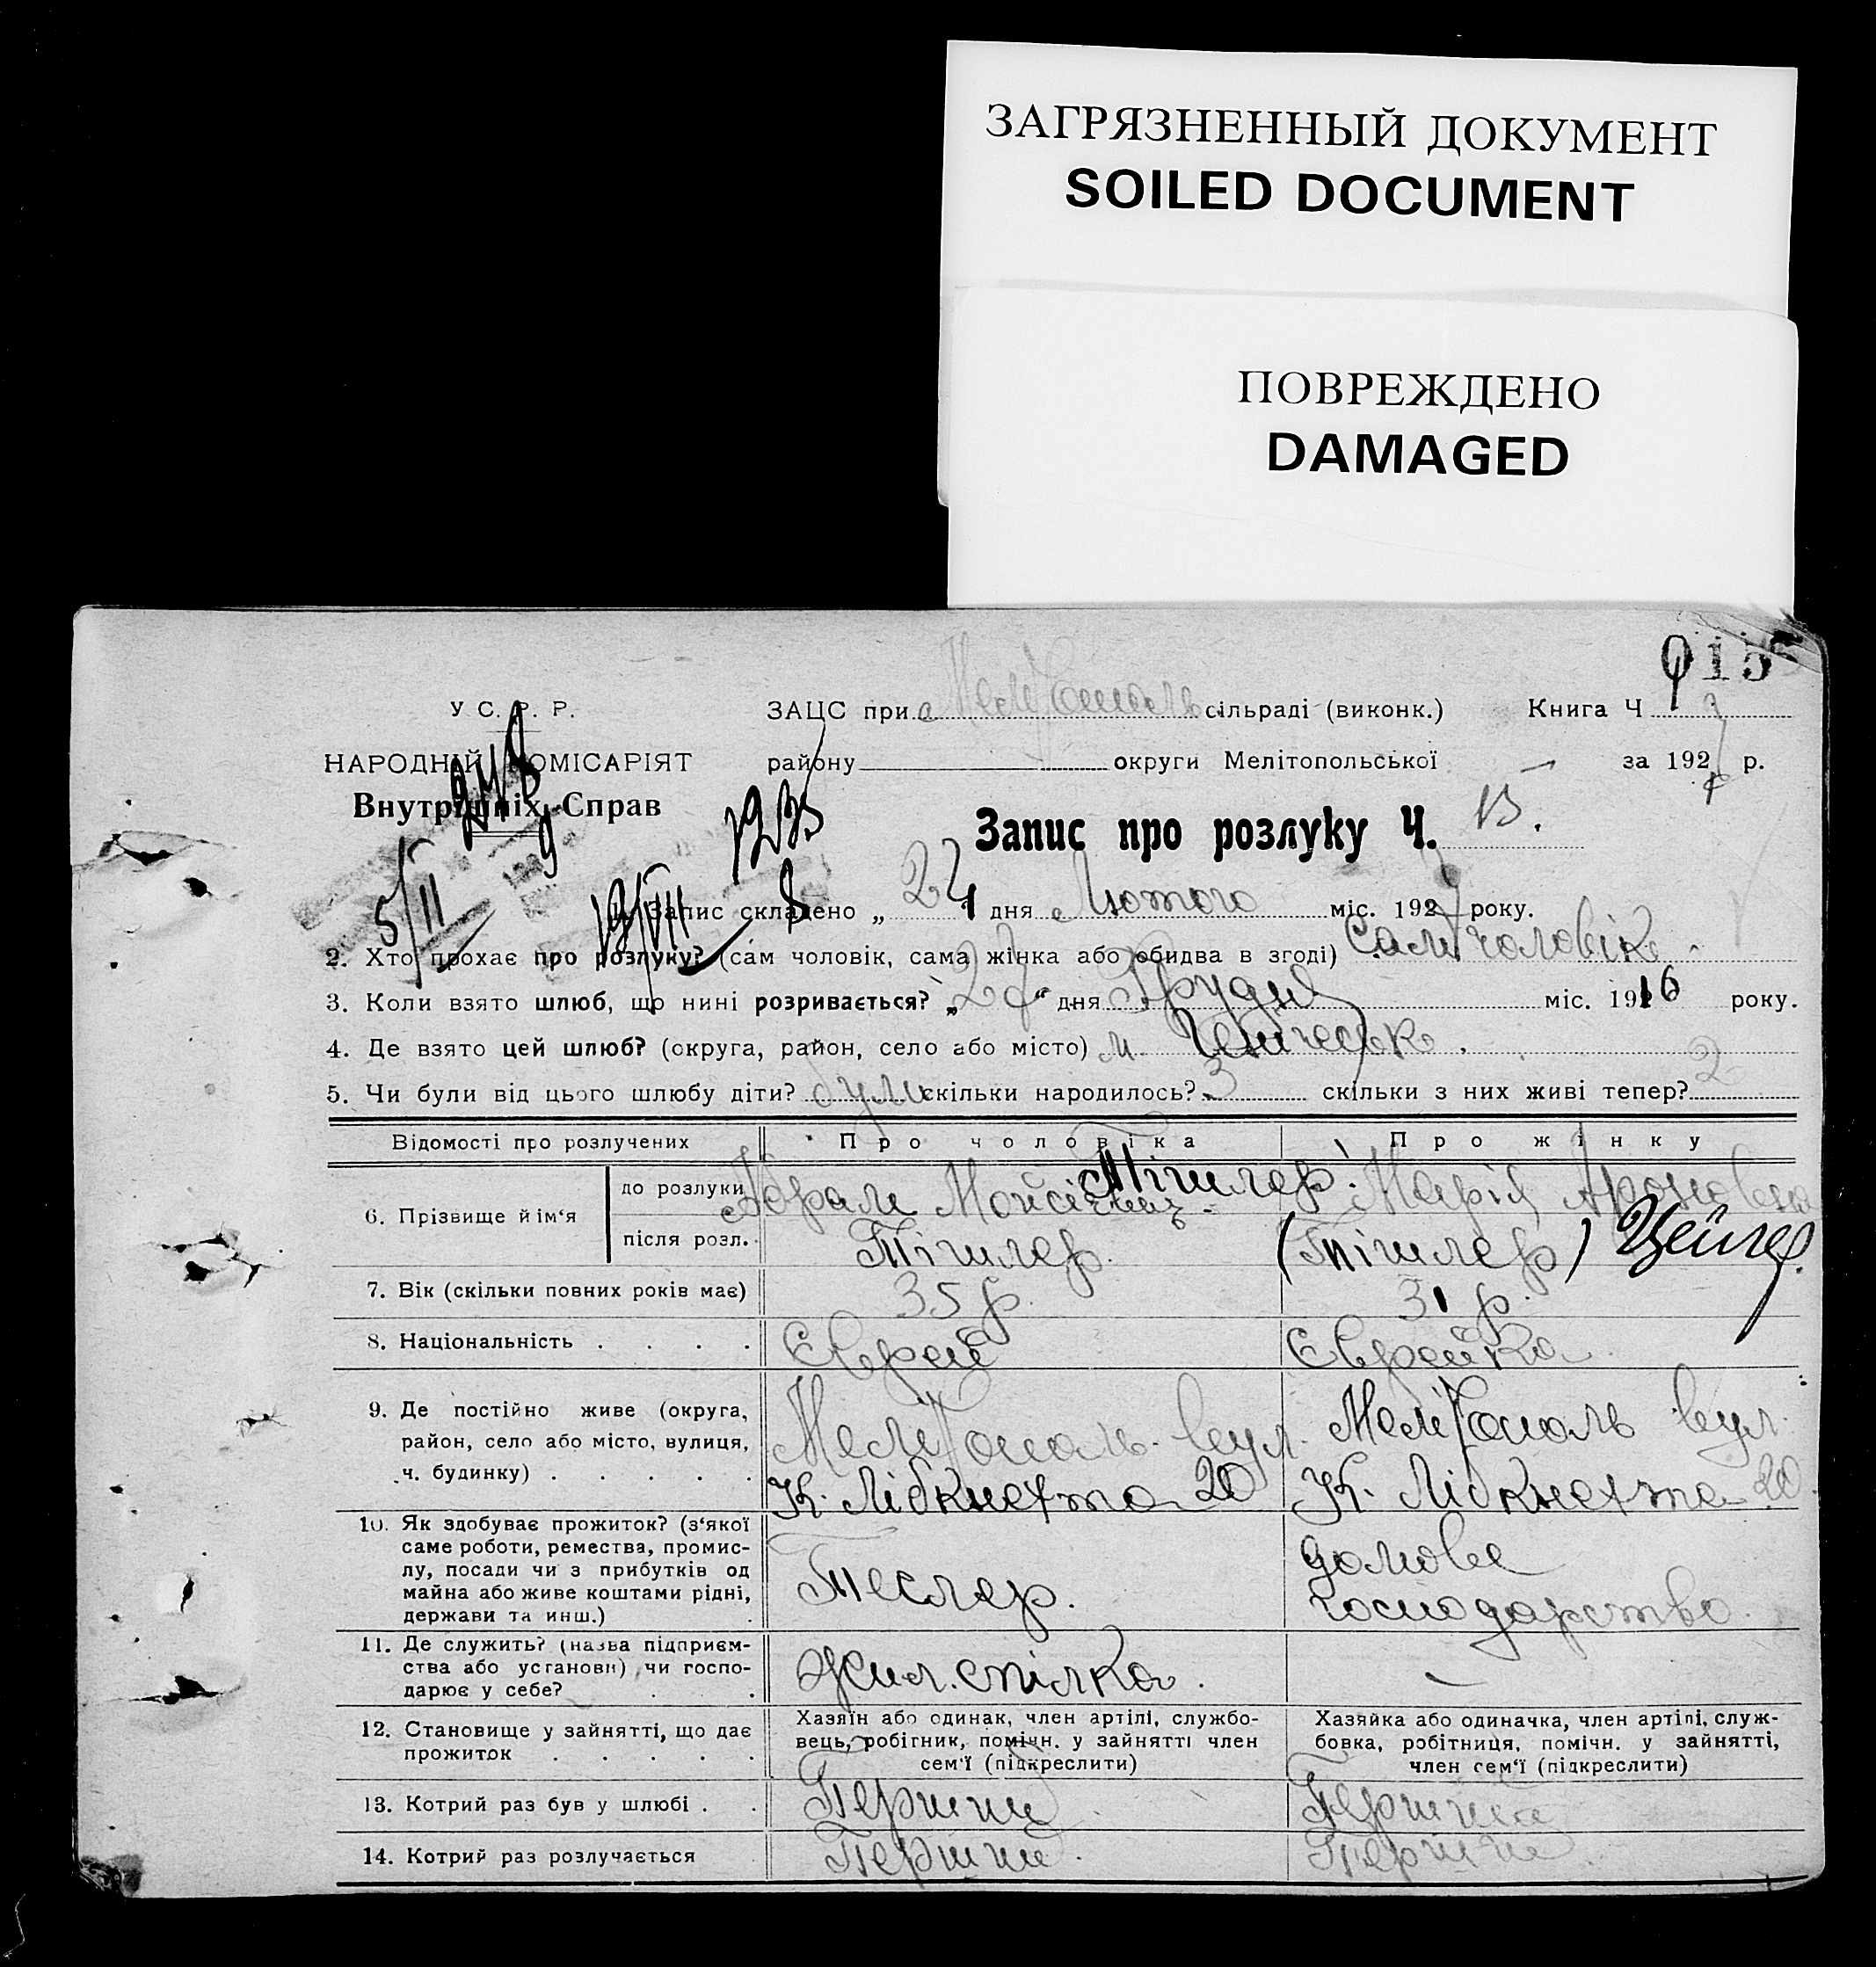 ЗАГРЯЗНЕННЫЙ ДОКУМЕНТ
SOILED DOCUMENT
ПОВРЕЖДЕНО
DAMAGED
015
У С. Р. Р.
ЗАЦС при Мелітополь сільраді (виконк.)
Книга Ч
НАРОДНІЙ КОМІСАРІЯТ
району округи Мелітопольської
за 1927 р.
Внутрішніх Справ
Запис про розлуку Ч. 15.
5/II
19/VII
Запис складено „ 24 дня Лютого міс. 1927 року.
2. Хто прохає про розлуку? (сам чоловік, сама жінка або обидва в згоді) Сам чоловік
3. Коли взято шлюб, що нині розривається? „27“ дня Грудня міс. 1916 року.
4. Де взято цей шлюб? (округа, район, село або місто) м. Генічеськ.
5. Чи були від цього шлюбу діти? були скільки народилось? 3 скільки з них живі тепер? 2
Відомості про розлучених
Про чоловіка
Про жінку
6. Прізвище й ім'я
до розлуки
Абрам Мойсієвич
Тішлер.
Марія Ароновна
після розл.
Тішлер.
(Тішлер) Цейгер.
7. Вік (скільки повних років має)
35 р.
31 р.
8. Національність . . . .
Єврей
Єврейка
9. Де постійно живе (округа,
район, село або місто, вулиця,
ч. будинку) . . . . .
Мелітополь вул.
К. Лібкнехта 20
Мелітополь вул.
К. Лібкнехта 20
10. Як здобуває прожиток? (з'якої
саме роботи, ремества, промис-
лу, посади чи з прибутків од
майна або живе коштами рідні,
держави та инш.) .
Теслер.
домове
господарство.
11. Де служить? (назва підприєм-
ства або установи) чи госпо-
дарює у себе? . .
Жил. спілка.
—
12. Становище у зайнятті, що дає
прожиток . . . . .
Хазяїн або одинак, член артілі, службо-
вець, робітник, помічн. у зайнятті член
сем'ї (підкреслити)
Хазяйка або одиначка, член артілі, служ-
бовка, робітниця, помічн. у зайнятті,
член сем'ї (підкреслити)
13. Котрий раз був у шлюбі . .
Перший
Перший
14. Котрий раз розлучається
Перший.
Перший.